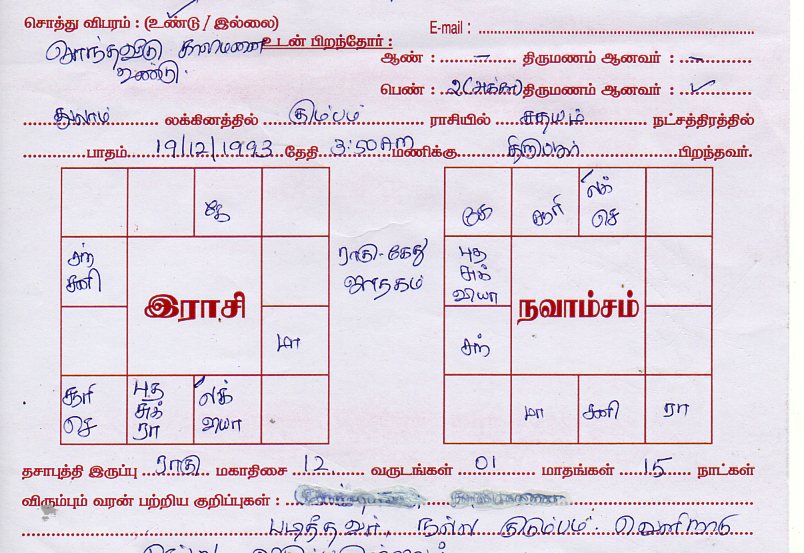 சொத்து விபரம் : (உண்டு / இல்லை) E-mail :
சொந்தவீடு காலிமனை உடன் பிறந்தோர் :
உண்டு. ஆண் : – திருமணம் ஆனவர் : –
பெண் : 2(அக்கா) திருமணம் ஆனவர் : ✓
துலாம் லக்கினத்தில் கும்பம் ராசியில் சதயம் நட்சத்திரத்தில்
பாதம் 19/12/1993 தேதி 3:50 AM மணிக்கு திருப்பூர் பிறந்தவர்.
கே
கு சூரி லக் செ
சந் சனி
ராகு-கேது
ஜாதகம்
புத சுக் வியா
இராசி
நவாம்சம்
மா
சந்
சூரி செ
புத சுக் ரா
லக் வியா
மா சனி ரா
தசாபுத்தி இருப்பு ராகு மகாதிசை 12 வருடங்கள் 01 மாதங்கள் 15 நாட்கள்
விரும்பும் வரன் பற்றிய குறிப்புகள் :
படித்தவர், நல்ல குடும்பம். வெளிநாடு